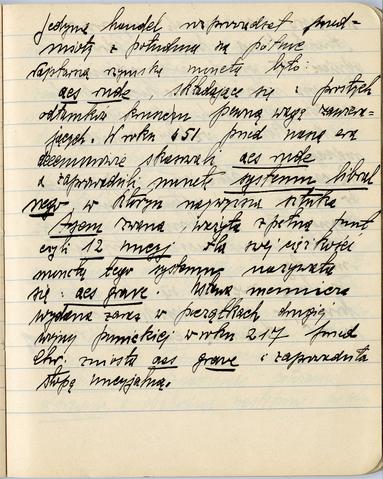 jedynie handel, wyprzedzał przed-
mioty z południa na północ
zapłatną rzymską monetą było:
aes rude, składające się z prostych
odłamków kruszcu pewną wagę zawiera-
jących. W roku 451 przed naszą erą
decemwirowie skasowali aes rude
a zaprowadzili monetę systemu libral
nego, w którym najwyższa sztuka
Assem zwana, ważyła zupełny funt
czyli 12 uncyj. Dla swej ciężkości
moneta tego systemu nazywała
się: aes grave. Ustawa mennicza
wydana zaraz w początkach drugiej
wojny punickiej w roku 217 przed
Chr. zniosła aes grave i zaprowadziła
stopę uncyjalną.